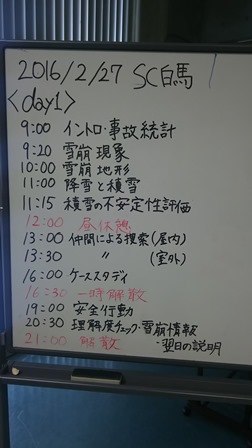 2016/2/27 SC白馬
<day1>
9:00 イントロ・事故統計
9:20 雪崩現象
10:00 雪崩地形
11:00 降雪と積雪
11:15 積雪の不安定性評価
12:00 昼休憩
13:00 仲間による捜索(屋内)
13:30 〃 (室外)
16:00 ケーススタディ
16:30 一時解散
19:00 安全行動
20:30 理解度チェック・雪崩情報
21:00 解散 ・翌日の説明